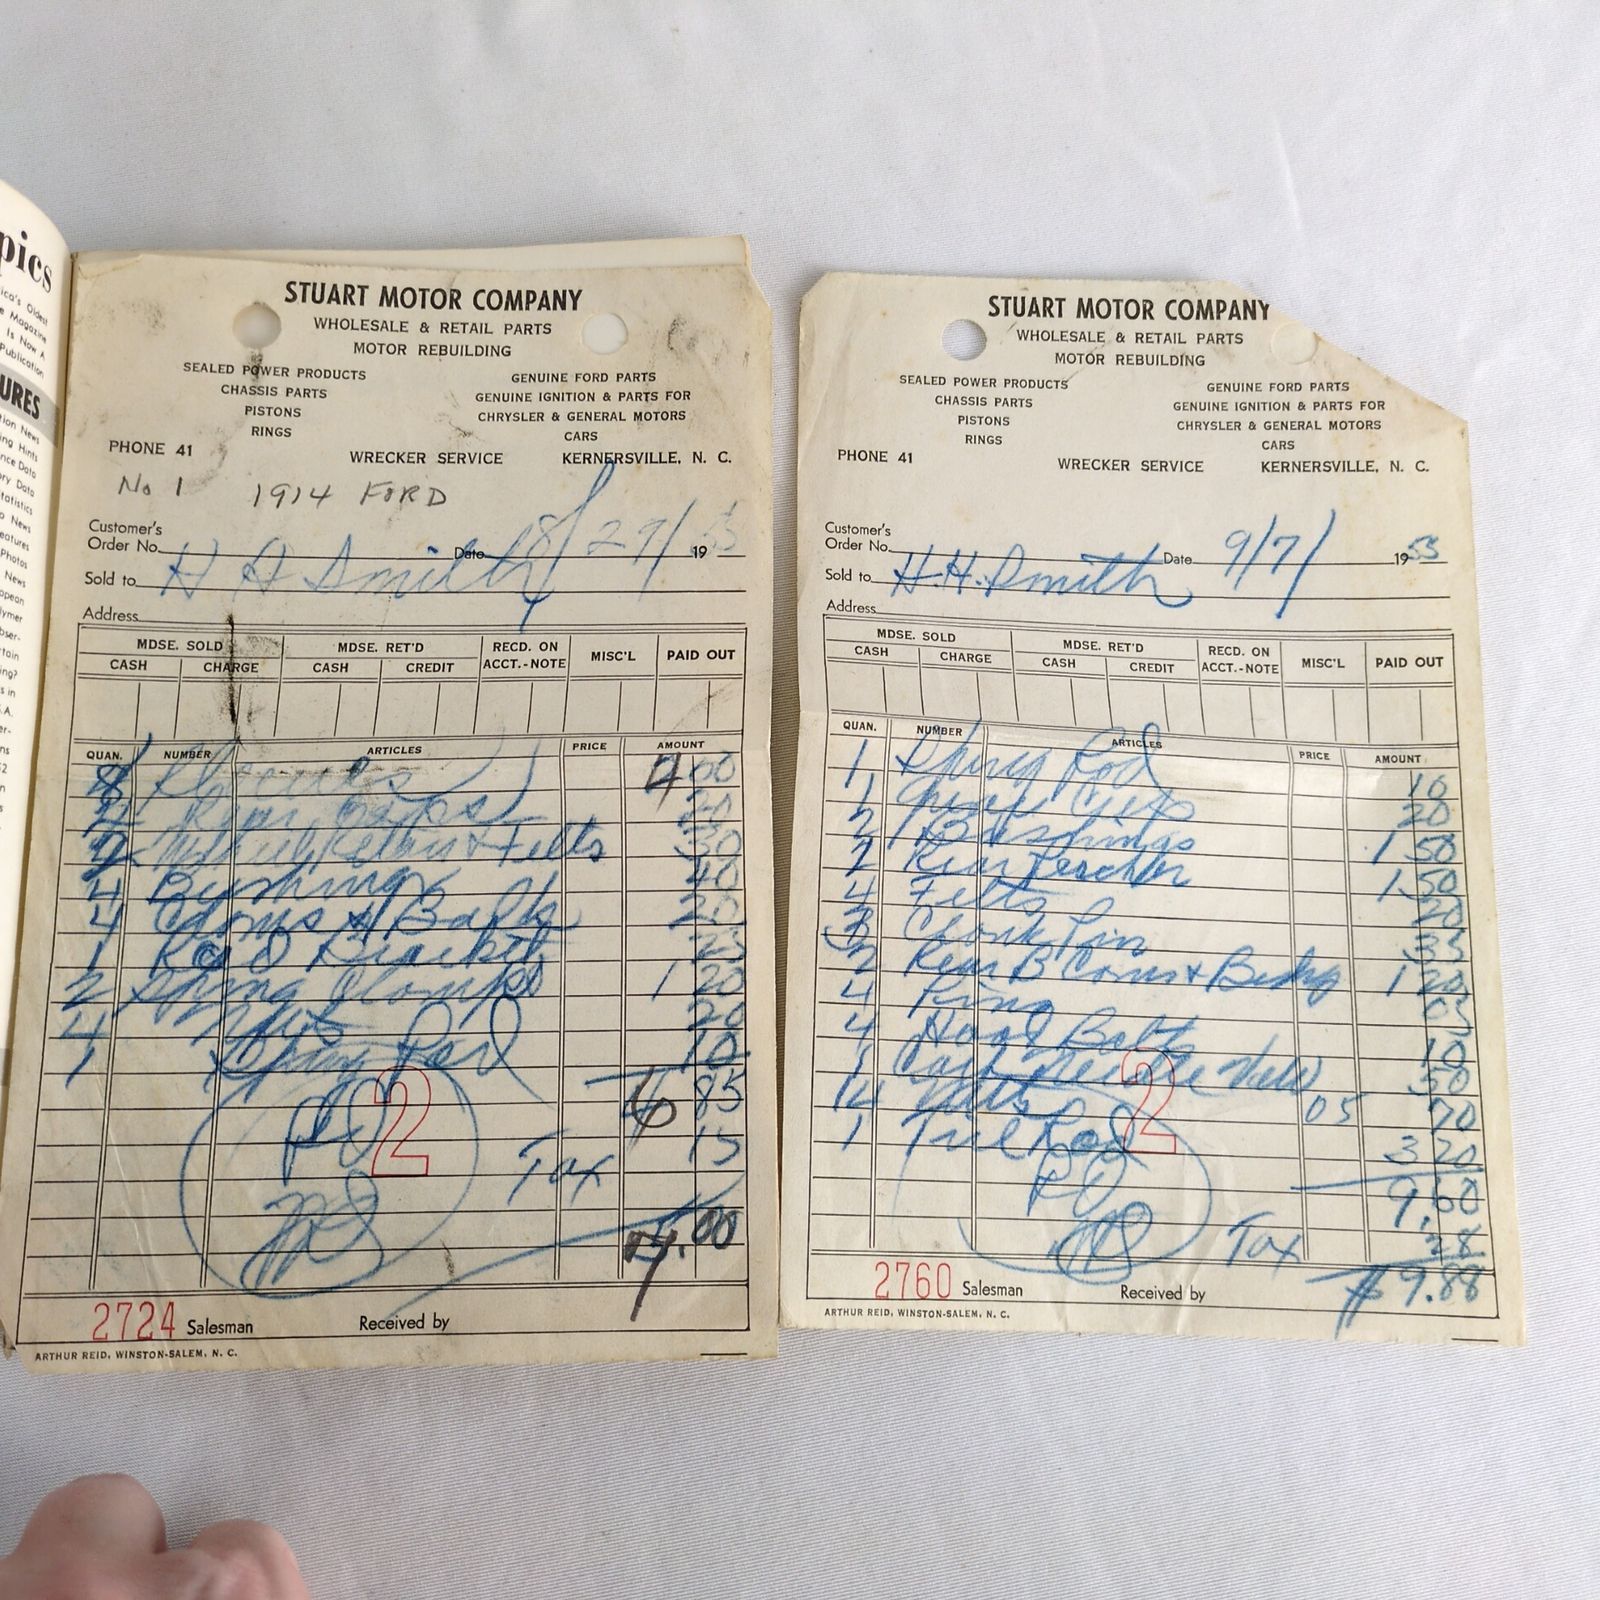 pics
ica's Oldest
e Magazine
Is Now A
Publication
URES
tion News
ing Hints
nce Data
ory Data
tatistics
o News
eatures
Photos
News
opean
lymer
bser-
rtain
ing?
s in
.A.
er-
ns
52
STUART MOTOR COMPANY
WHOLESALE & RETAIL PARTS
MOTOR REBUILDING
SEALED POWER PRODUCTS
CHASSIS PARTS
PISTONS
RINGS
GENUINE FORD PARTS
GENUINE IGNITION & PARTS FOR
CHRYSLER & GENERAL MOTORS
CARS
PHONE 41 WRECKER SERVICE KERNERSVILLE, N. C.
No 1 1914 FORD
Customer's
Order No. Date 8/29/ 1953
Sold to H H Smith
Address
MDSE. SOLD MDSE. RET'D RECD. ON ACCT.-NOTE MISC'L PAID OUT
CASH CHARGE CASH CREDIT
QUAN. NUMBER ARTICLES PRICE AMOUNT
8 4 00
Rear Caps 20
2 Felts 30
4 Bushings 40
4 20
1 Rod Bracket 25
2 Spring Clamps 1 20
4 Nuts 20
1 10
6 85
PD 2 Tax 15
7.00
2724 Salesman Received by
ARTHUR REID, WINSTON-SALEM, N. C.
STUART MOTOR COMPANY
WHOLESALE & RETAIL PARTS
MOTOR REBUILDING
SEALED POWER PRODUCTS
CHASSIS PARTS
PISTONS
RINGS
GENUINE FORD PARTS
GENUINE IGNITION & PARTS FOR
CHRYSLER & GENERAL MOTORS
CARS
PHONE 41 WRECKER SERVICE KERNERSVILLE, N. C.
Customer's
Order No. Date 9/7/ 1953
Sold to H. H. Smith
Address
MDSE. SOLD MDSE. RET'D RECD. ON ACCT.-NOTE MISC'L PAID OUT
CASH CHARGE CASH CREDIT
QUAN. NUMBER ARTICLES PRICE AMOUNT
1 Rod 10
1 20
2 Bushings 1 50
2 Rear 1.50
4 Felts 20
3 Pin 35
2 Rear 1 20
4 05
4 Hood Bolts 10
1 50
14 05 70
1 Rod 3 20
2 9.60
PD Tax 28
$ 9.88
2760 Salesman Received by
ARTHUR REID, WINSTON-SALEM, N. C.